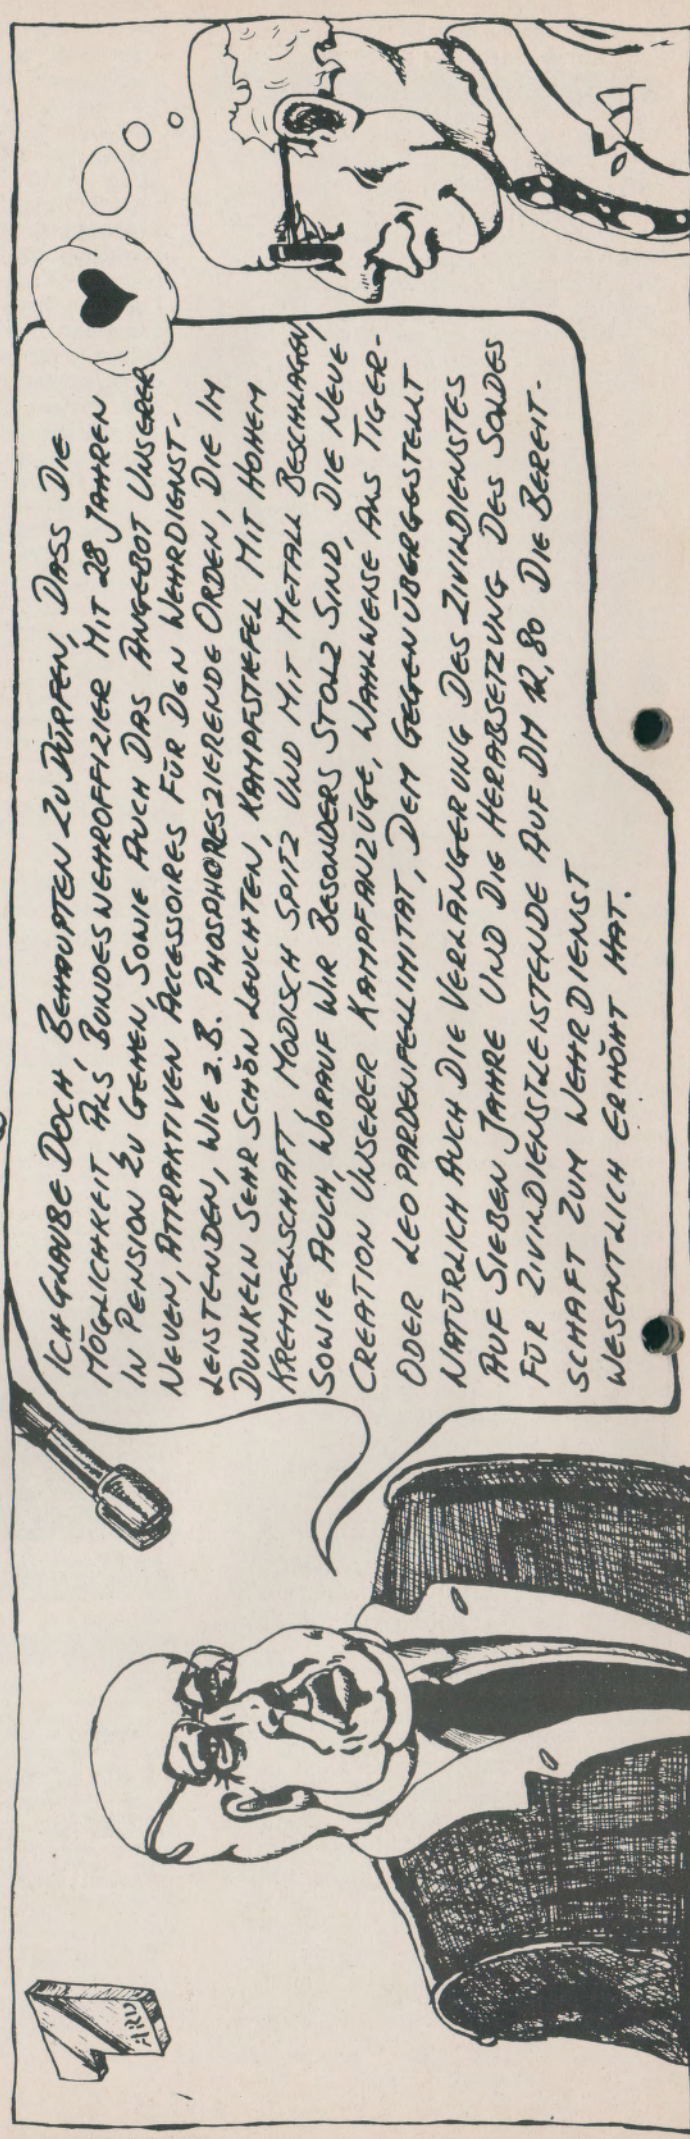 ICH GLAUBE DOCH, BEHAUPTEN ZU DÜRFEN, DASS DIE
MÖGLICHKEIT ALS BUNDESWEHROFFIZIER MIT 28 JAHREN
IN PENSION ZU GEHEN, SOWIE AUCH DAS ANGEBOT UNSERER
NEUEN, ATTRAKTIVEN ACCESSOIRES FÜR DEN WEHRDIENST-
LEISTENDEN, WIE Z.B. PHOSPHORESZIERENDE ORDEN, DIE IM
DUNKELN SEHR SCHÖN LEUCHTEN, KAMPFSTIEFEL MIT HOHEM
KREMPELSCHAFT, MODISCH SPITZ UND MIT METALL BESCHLAGEN,
SOWIE AUCH, WORAUF WIR BESONDERS STOLZ SIND, DIE NEUE
CREATION UNSERER KAMPFANZÜGE, WAHLWEISE AUS TIGER-
ODER LEOPARDENFELLIMITAT, DEM GEGENÜBERGESTELLT
NATÜRLICH AUCH DIE VERLÄNGERUNG DES ZIVILDIENSTES
AUF SIEBEN JAHRE UND DIE HERABSETZUNG DES SOLDES
FÜR ZIVILDIENSTLEISTENDE AUF DM 12,80 DIE BEREIT-
SCHAFT ZUM WEHRDIENST
WESENTLICH ERHÖHT HAT.
ARD